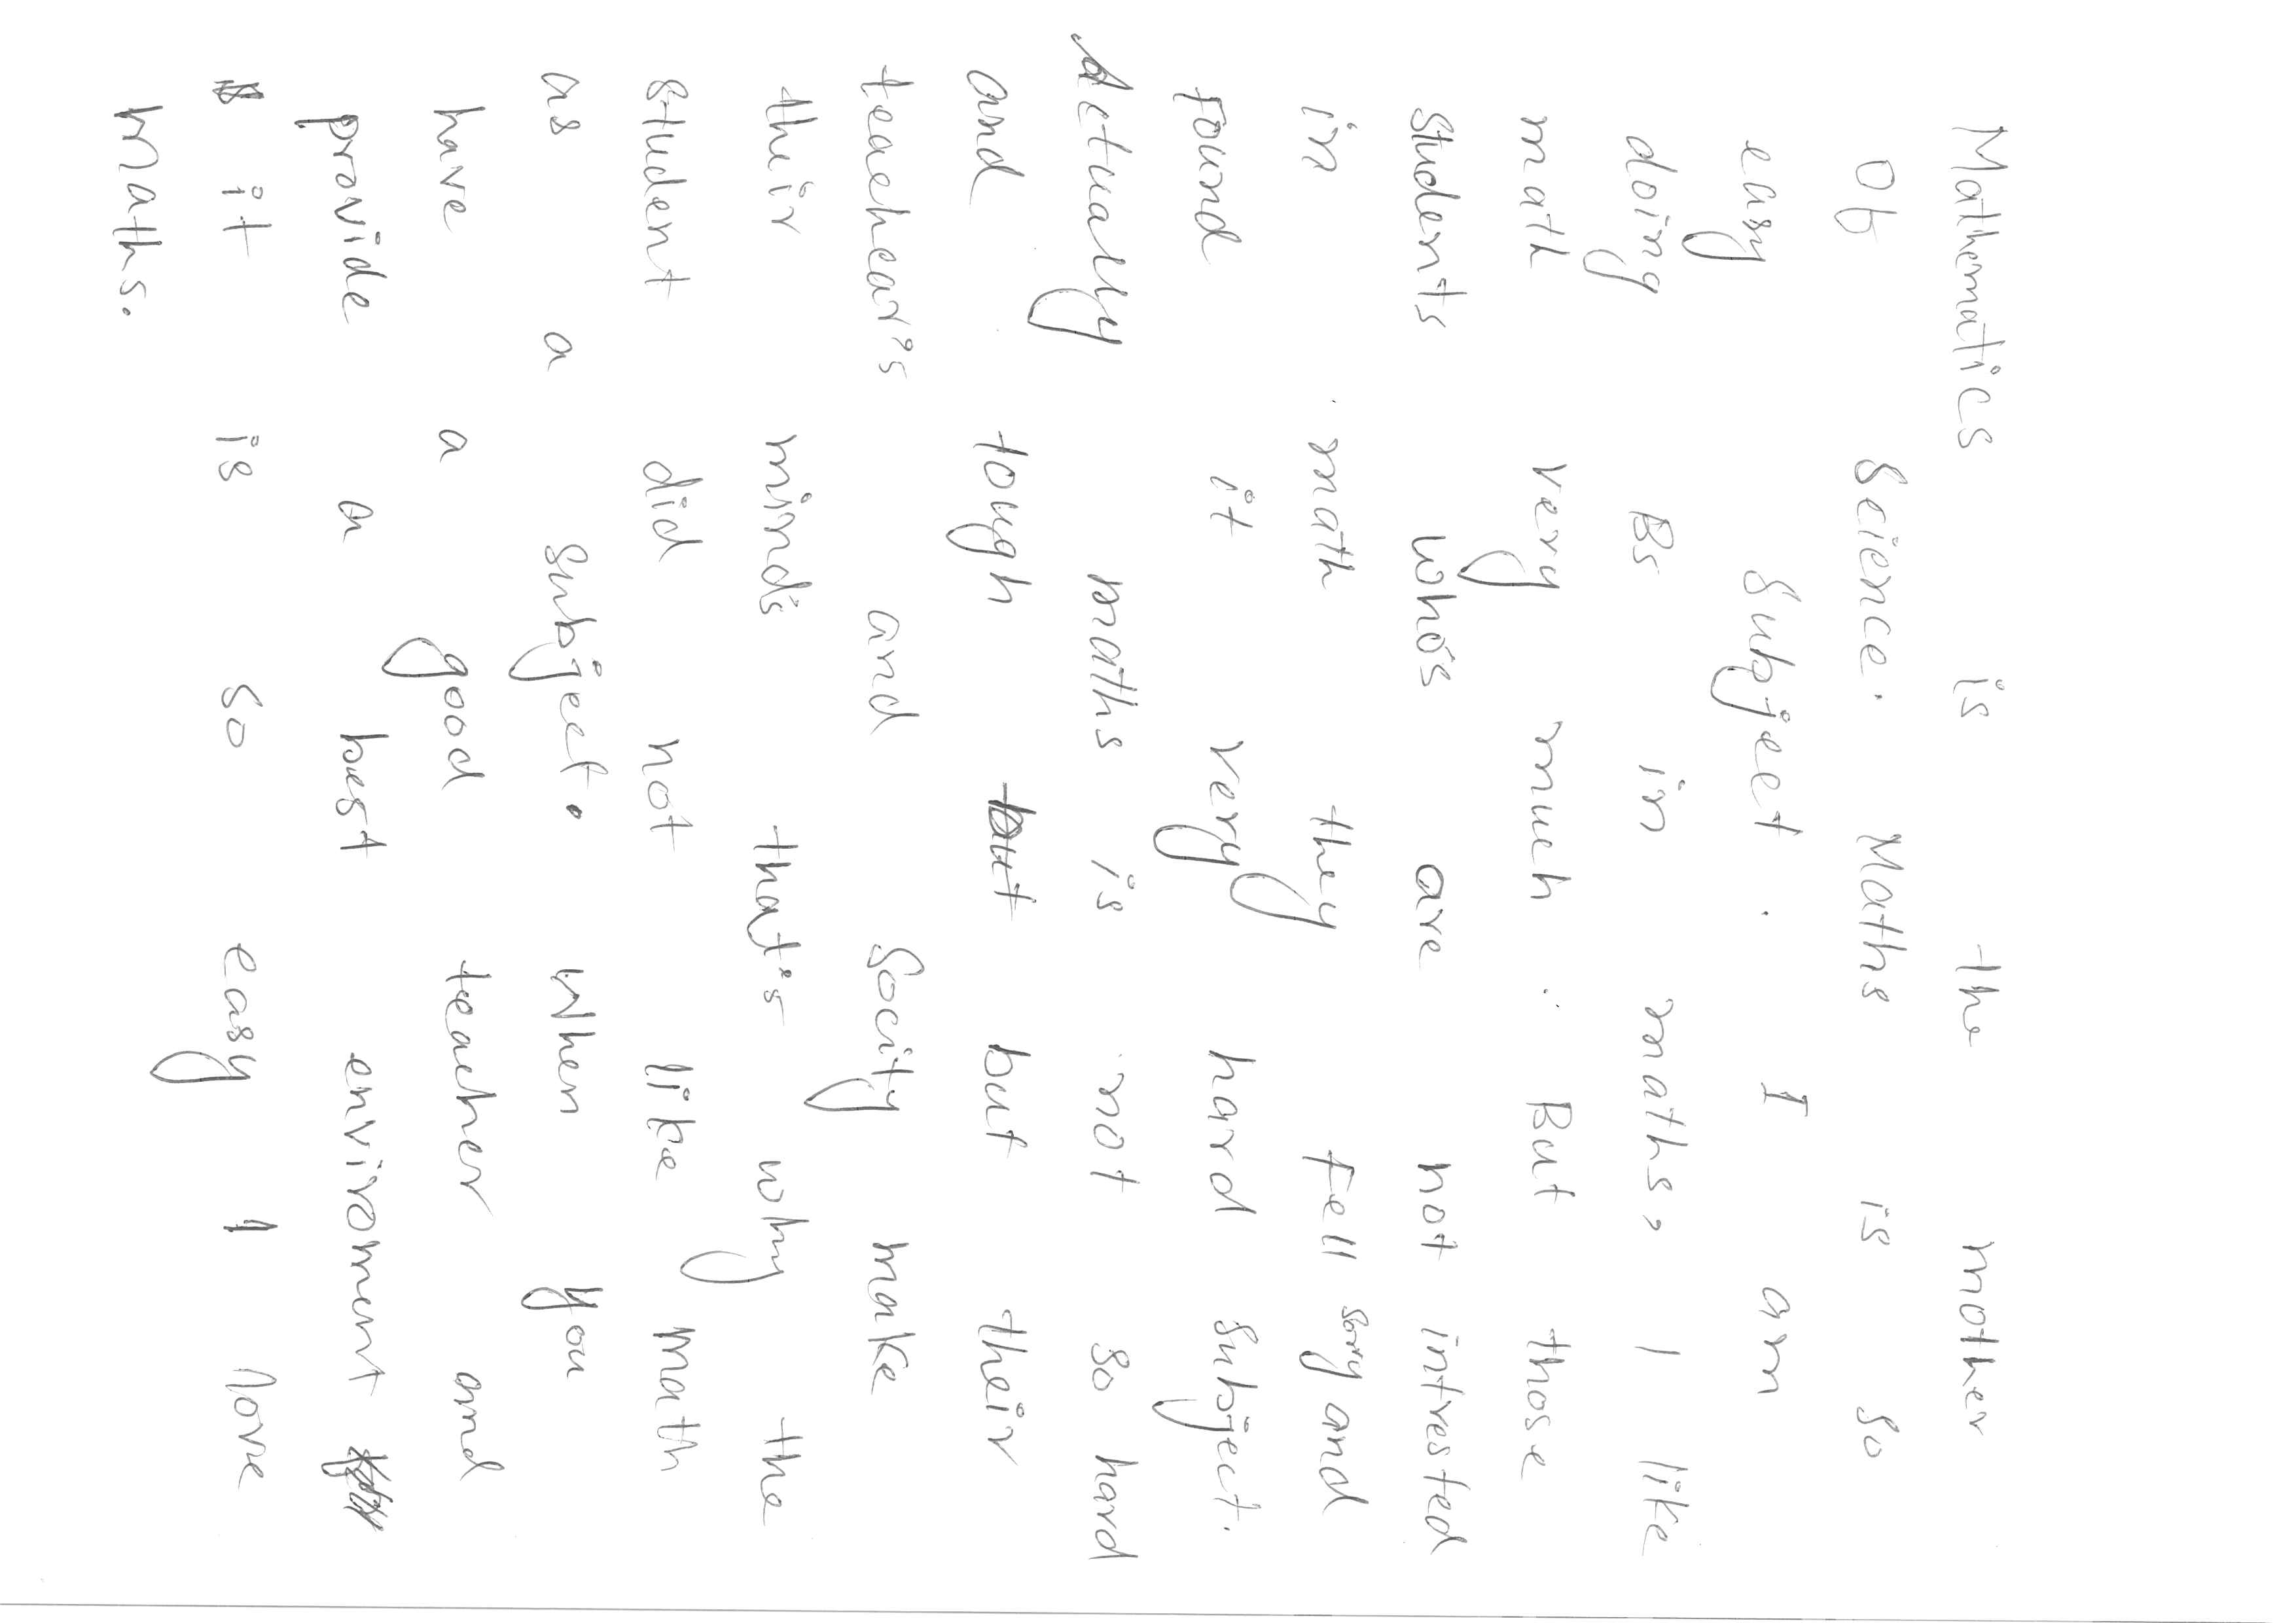 Mathematics is the mother
Of Science. Maths is so
easy Subject. I am
doing Bs in maths, I like
math very much. But those
students who's are not intrested
in math they Fell sorry and
Found it very hard subject.
Actually maths is not so hard
and tough but but their
teachear's and Socity make
their mind's that's why the
student did not like math
as a subject. When you
have a good teacher and
provide a best enviroment
it is so easy I love
Maths.